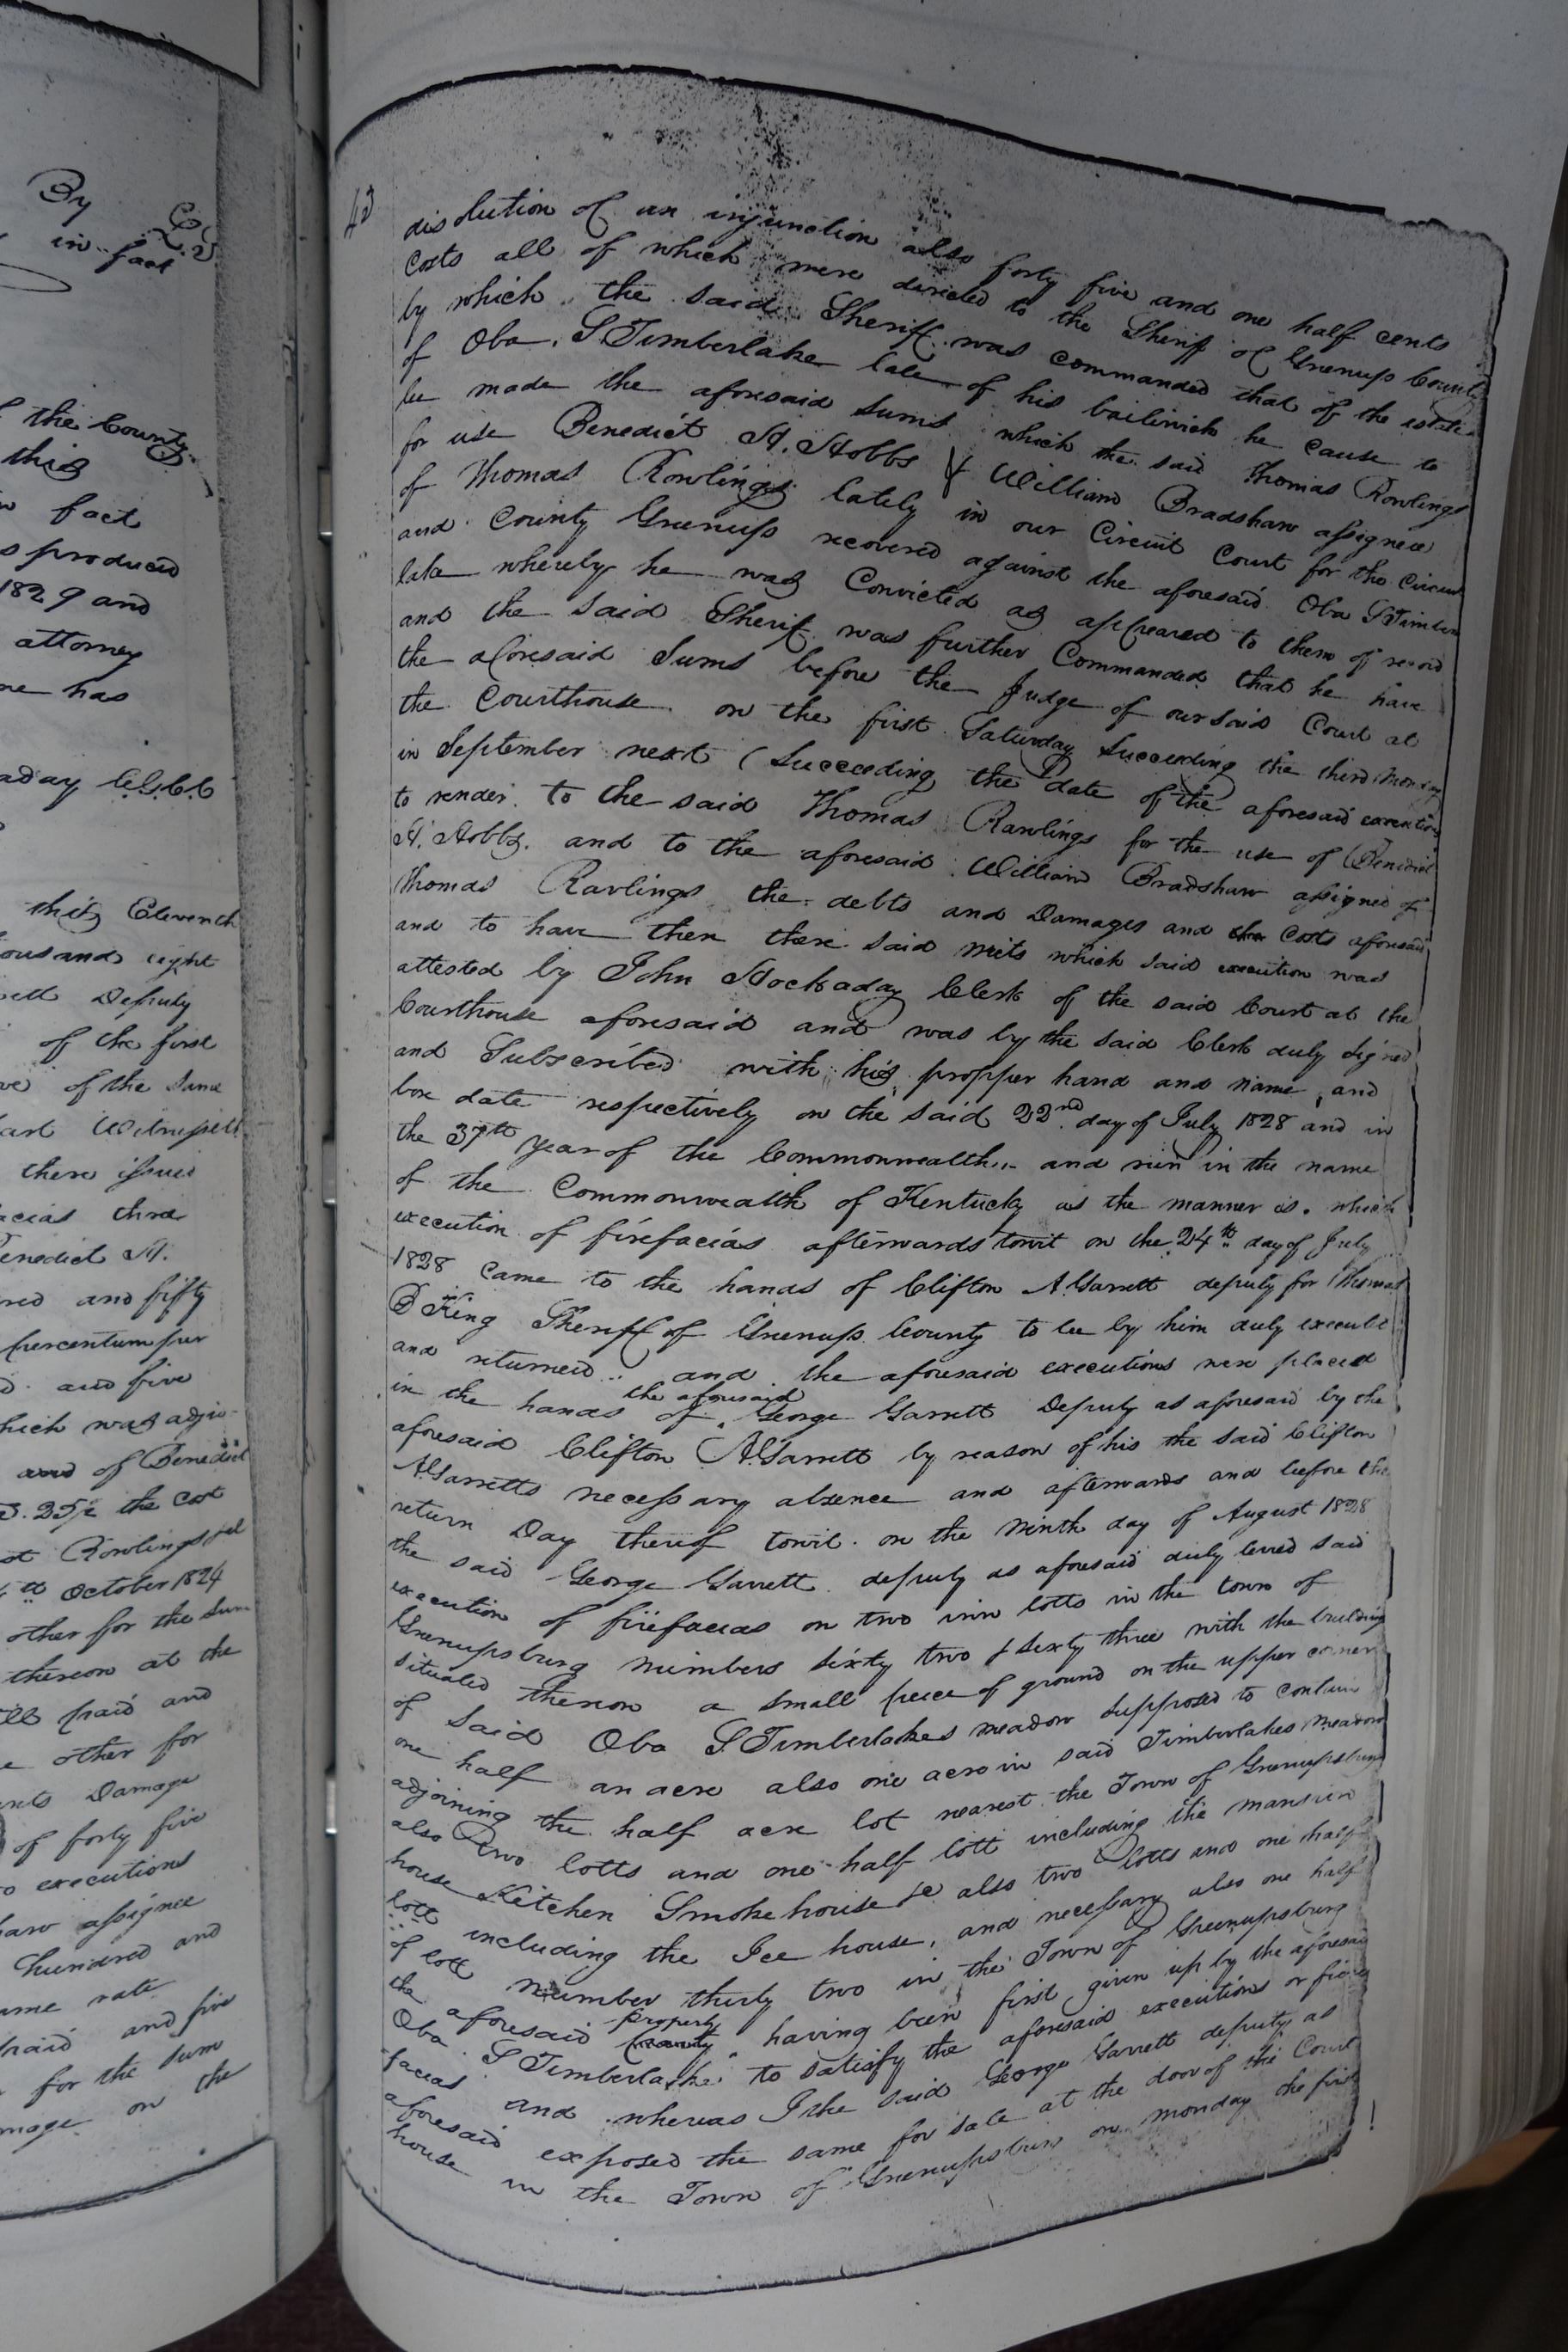 By
in fact
the County
this
fact
s produced
1829 and
attorney
me has
aday C.G.C.C
this Eleventh
ousand eight
ett Deputy
of the first
ve of the same
art Witnesseth
there issued
facias three
Benedict H.
red and fifty
percentum per
and five
which was adju-
and of Benedict
25½ the cost
Rowlings
th October 1824
other for the sum
thereon at the
ll paid and
e other for
nts Damage
of forty five
o executions
haw assignee
hundred and
ame rate
paid and five
for the sum
mage on the
43
disolution of an injunction also forty five and one half cents
Costs all of which were directed to the Sherif of Greenup County
by which the said Sheriff was commanded that of the estate
of Oba. S Timberlake late of his bailiwick he cause to
be made the aforesaid sums which the said Thomas Rowlings
for use Benedict H. Hobbs & William Bradshaw assignee
of Thomas Rowlings lately in our Circuit Court for the Circuit
and County Greenup recovered against the aforesaid Oba S Timber
lake whereby he was Convicted as appeared to them of record
and the said Sherif was further Commanded that he have
the aforesaid Sums before the Judge of our said Court at
the Courthouse on the first Saturday Succeeding the third Monday
in September next (Succeeding the date of the aforesaid execution
to render to the said Thomas Rawlings for the use of Benedict
H. Hobbs. and to the aforesaid William Bradshaw assigned of
Thomas Ravlings the debts and Damages and Costs aforesaid
and to have then there said writs which said execution was
attested by John Hockaday Clerk of the said Court at the
Courthouse aforesaid and was by the said Clerk duly signed
and Subscribed with his propper hand and name, and
bore date respectively on the said 22nd. day of July 1828 and in
the 37th year of the Commonwealth and run in the name
of the Commonwealth of Kentucky as the manner is. which
execution of firefacias afterwards towit on the 24th day of July
1828 came to the hands of Clifton A. Garrett deputy for Thomas
B King Sheriff of Greenup County to be by him duly execute
and returned and the aforesaid executions were placed
in the hands of the aforesaid George Garrett Deputy as aforesaid by the
aforesaid Clifton A. Garrett by reason of his the said Clifton
A. Garretts necessary absence and afterwards and before the
return Day thereof towit on the Ninth day of August 1828
the said George Garrett deputy as aforesaid duly levied said
execution of firefacias on two inn lotts in the town of
Greenupsburg numbers sixty two & sixty three with the building
situated thereon a small peice of ground on the upper corner
of said Oba S Timberlakes meadow supposed to contain
one half an acre also one acre in said Timberlakes meadow
adjoining the half acre lot nearest the Town of Greenupsburg
also two lotts and one half lott including the mansion
house Kitchen Smokehouse &c also two lotts and one half
lott including the Ice house, and necessary also one half
of lott number thirty two in the Town of Greenupsburg
the aforesaid property having been first given up by the aforesaid
Oba S Timberlake to satisfy the aforesaid executions or fiere
facias and whereas I the said George Garrett deputy as
aforesaid exposed the same for sale at the door of the Court
house in the Town of Greenupsburg on monday the first